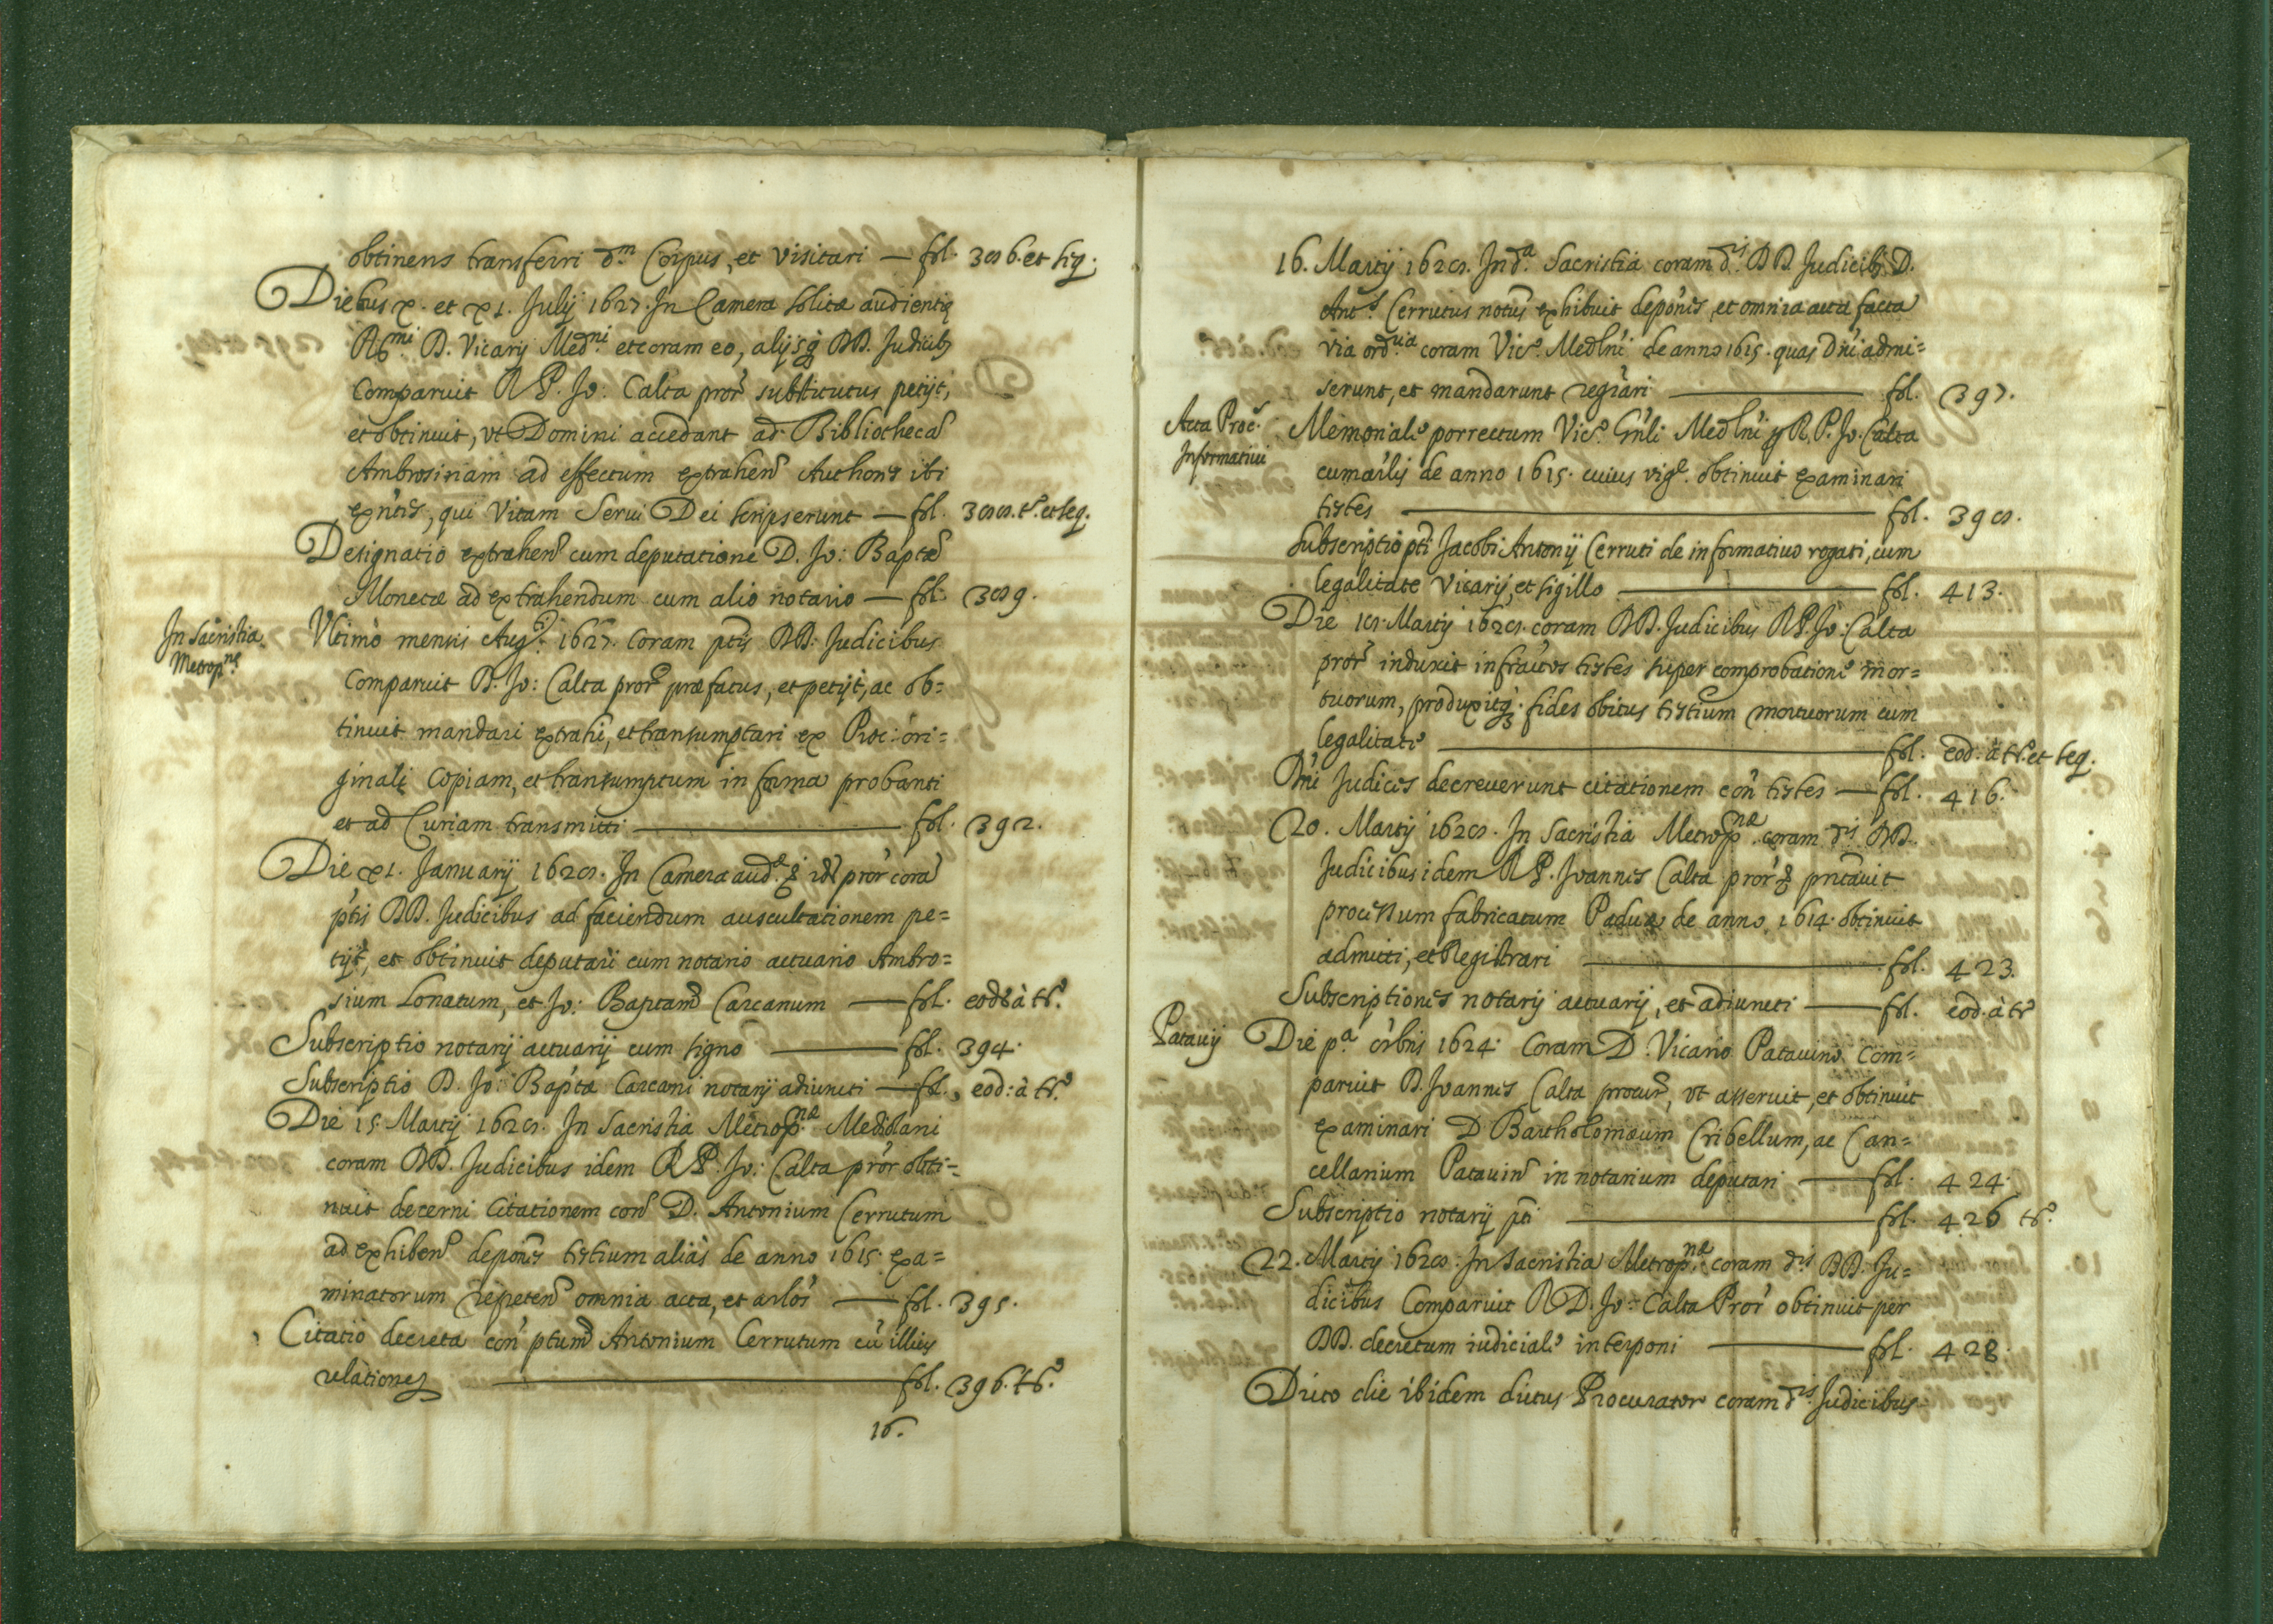 obtinens transferri d.m Corpus, et visitari — fol. 386. et seq.
Diebus x. et x1. Julij 1627. In Camera solitæ audientię
R6mi D. Vicarij Medni et coram eo, alijsq; DD. Judicib9
Comparuit R P. Jo: Calta pror substitutus petijt,
et obtinuit, vt Domini accedant ad Bibliothecā
Ambrosinam ad effectum extrahend Authores ibi
exñtes, qui Vitam Serui Dei scripserunt — fol. 388. t.o et seq.
Designatio extrahend cum deputatione D. Jo: Baptæ
Monetæ ad extrahendum cum alio notario — fol. 389.
In Sacristia
Metrop.næ
Vltimo mensis Aug.ti 1627. Coram ptis DD. Judicibus
Comparuit D. Jo: Calta pror præfatus, et petijt, ac ob=
tinuit mandari extrahi, et transumptari ex Proc: ori=
ginali Copiam, et transumptum in forma probanti
et ad Curiam transmitti — fol. 392.
Die x1. Januarij 1628. In Camera aud.æ idē pror corā
ptis DD. Judicibus ad faciendum auscultationem pe=
tijt, et obtinuit deputari cum notario actuario Ambro=
sium Lonatum, et Jo: Baptam Carcanum — fol. eod: à t.o
Subscriptio notarij actuarij cum signo — fol. 394.
Subscriptio D. Jo: Baptæ Carcani notarij adiuncti — fol. eod: à t.o
Die 15. Martij 1628. In Sacristia Metrop.næ Mediolani
coram DD. Judicibus idem R P. Jo: Calta pror obti=
nuit decerni Citationem con D. Antonium Cerrutum
ad exhibend deponēs testium aliàs de anno 1615. exa=
minatorum repetend omnia acta, et arlos — fol. 395.
Citatio decreta con ptum Antonium Cerrutum cū illius
relatione — fol. 396. t.o
16.
16. Martij 1628. In d.a Sacristia coram d.is DD. Judicib9 D.
Ant.s Cerrutus notus exhibuit deponēs, et omnia acta facta
via ord.ria coram Vic.o Medlni de anno 1615. quas Dni admi=
serunt, et mandarunt regrari — fol. 397.
Acta Proc.s
Informatiui
Memoriale porrectum Vic.o Gnli Medlni p R. P. Jo. Calta
cum arlis de anno 1615. cuius vig.e obtinuit examinari
testes — fol. 398.
Subscriptio pti Jacobi Antonij Cerruti de informatiuo rogati, cum
legalitate Vicarij, et sigillo — fol. 413.
Die 18. Martij 1628. coram DD. Judicibus R P. Jo: Calta
pror induxit infrattos testes super comprobatione mor=
tuorum, produxitq; fides obitus testium mortuorum cum
legalitate — fol. eod: à t.o et seq.
Dni Judices decreuerunt citationem con testes — fol. 416.
20. Martij 1628. In Sacristia Metrop.næ coram d.is DD.
Judicibus idem R P. Joannes Calta pror pntauit
processum fabricatum Paduæ de anno 1614. obtinuit
admitti, et Registrari — fol. 423.
Subscriptiones notarij actuarij, et adiuncti — fol. eod. à t.o
Patauij
Die p.a orbris 1624. Coram D. Vicario Patauino Com=
paruit D. Joannes Calta procur, vt asseruit, et obtinuit
examinari D Bartholomæum Cribellum, ac Can=
cellarium Patauin in notarium deputari — fol. 424.
Subscriptio notarij pti — fol. 426 t.o
22. Martij 1628. In Sacristia Metrop.næ coram d.is DD. Ju=
dicibus Comparuit R D. Jo: Calta Pror obtinuit per
DD. decretum iudiciale interponi — fol. 428.
Dicto die ibidem dictus Procurator coram d.is Judicibus